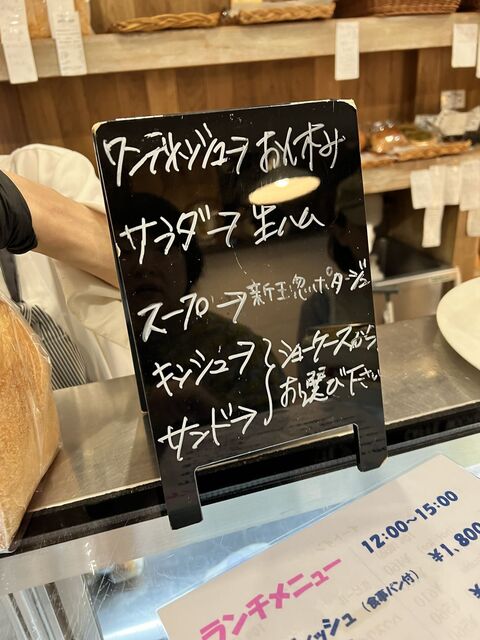 ワンディッシュ→お休み
サラダー→生ハム
スープ→新玉葱ポタージュ
キッシュ→
サンド→
ショーケースから
お選び下さい
ランチメニュー
12:00〜15:00
ィッシュ (食事パン付)
¥1,800